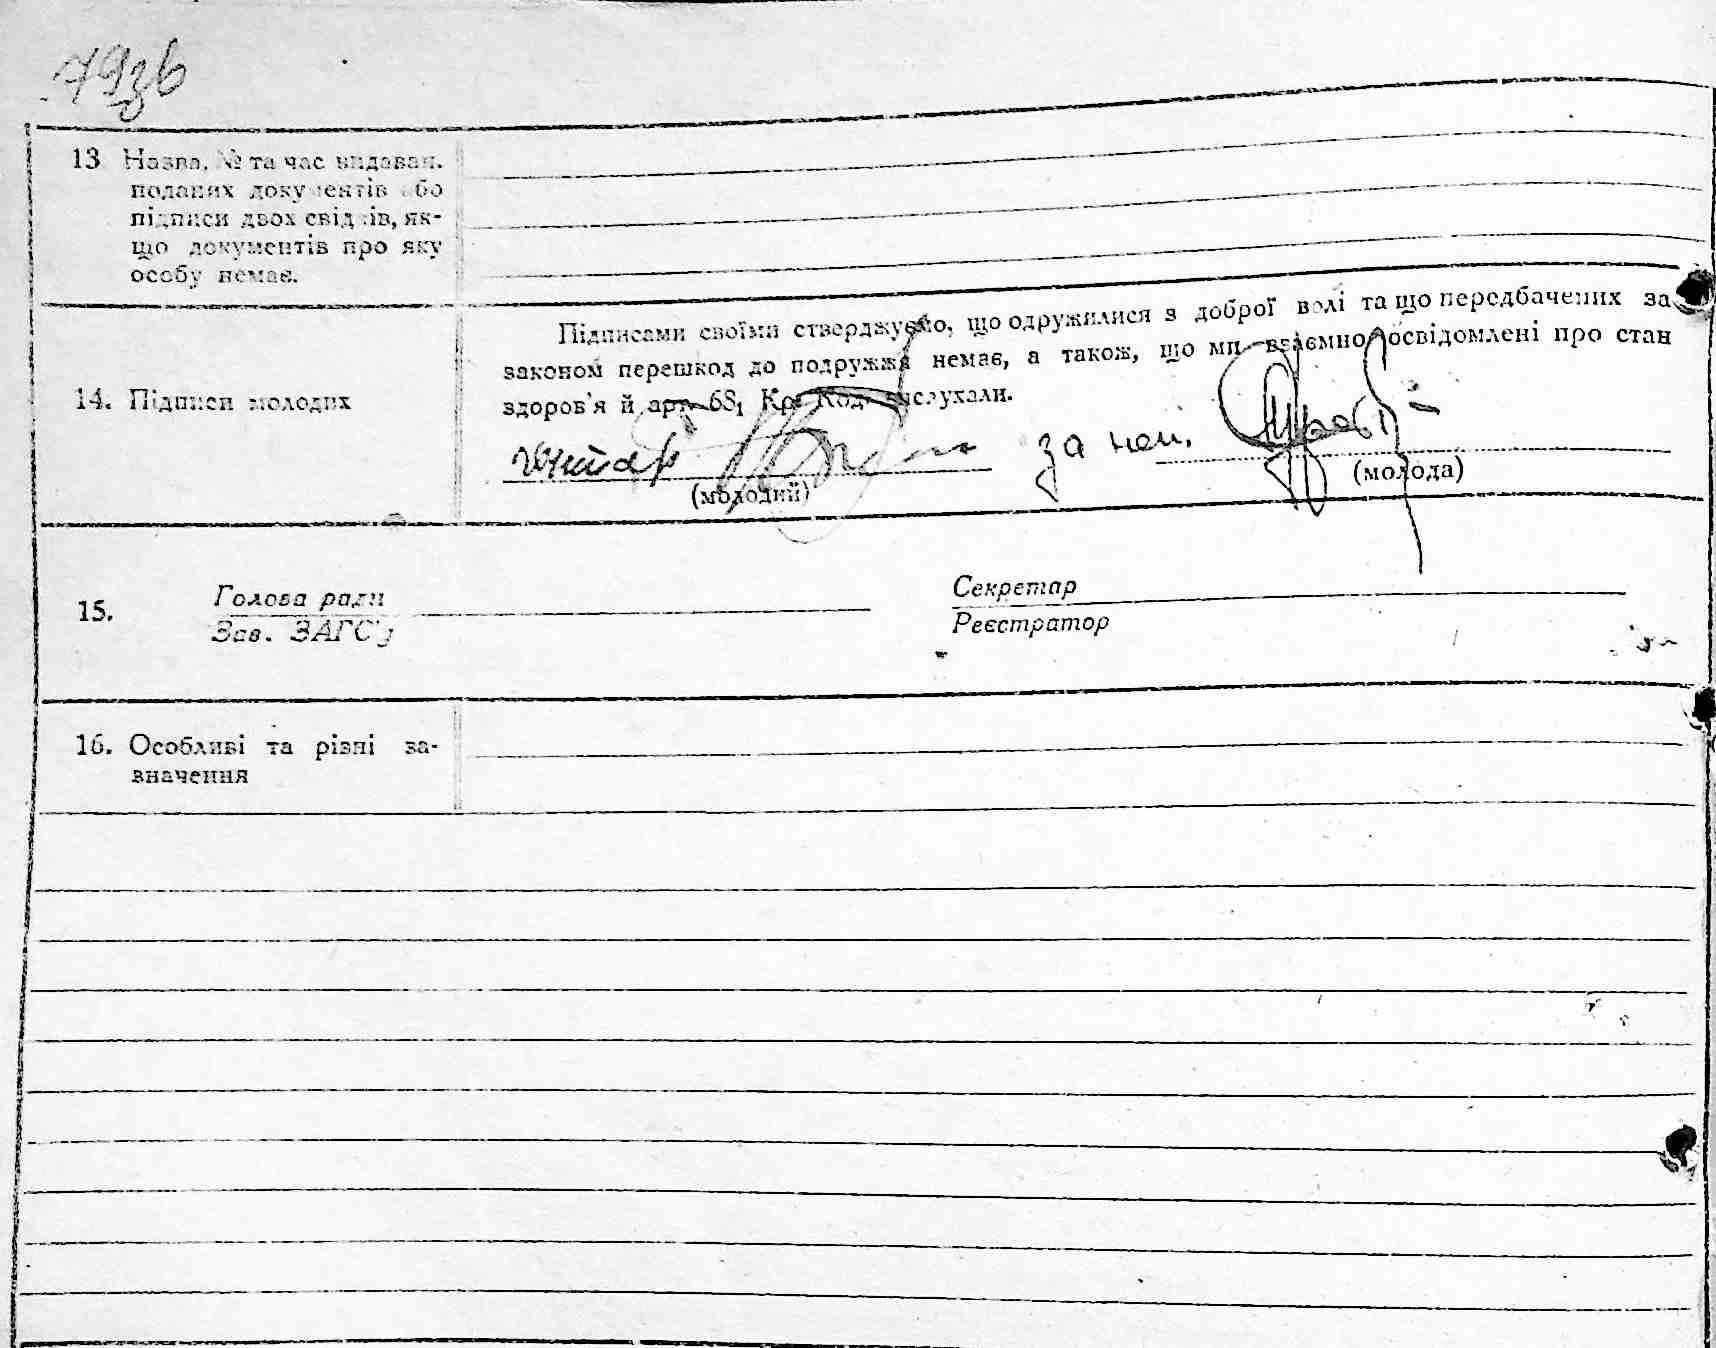 79зв
13 Назва, № та час видаван.
поданих документів або
підписи двох свідків, як-
що документів про яку
особу немає.
14. Підписи молодих
Підписами своїми стверджуємо, що одружилися з доброї волі та що передбачених за
законом перешкод до подружжя немає, а також, що ми взаємно освідомлені про стан
здоров'я й арт. 68₁ Кр. Код. вислухали.
за неп.
(молодий) (молода)
15. Голова ради Секретар
Зав. ЗАГС'у Реєстратор
16. Особливі та різні за-
значення